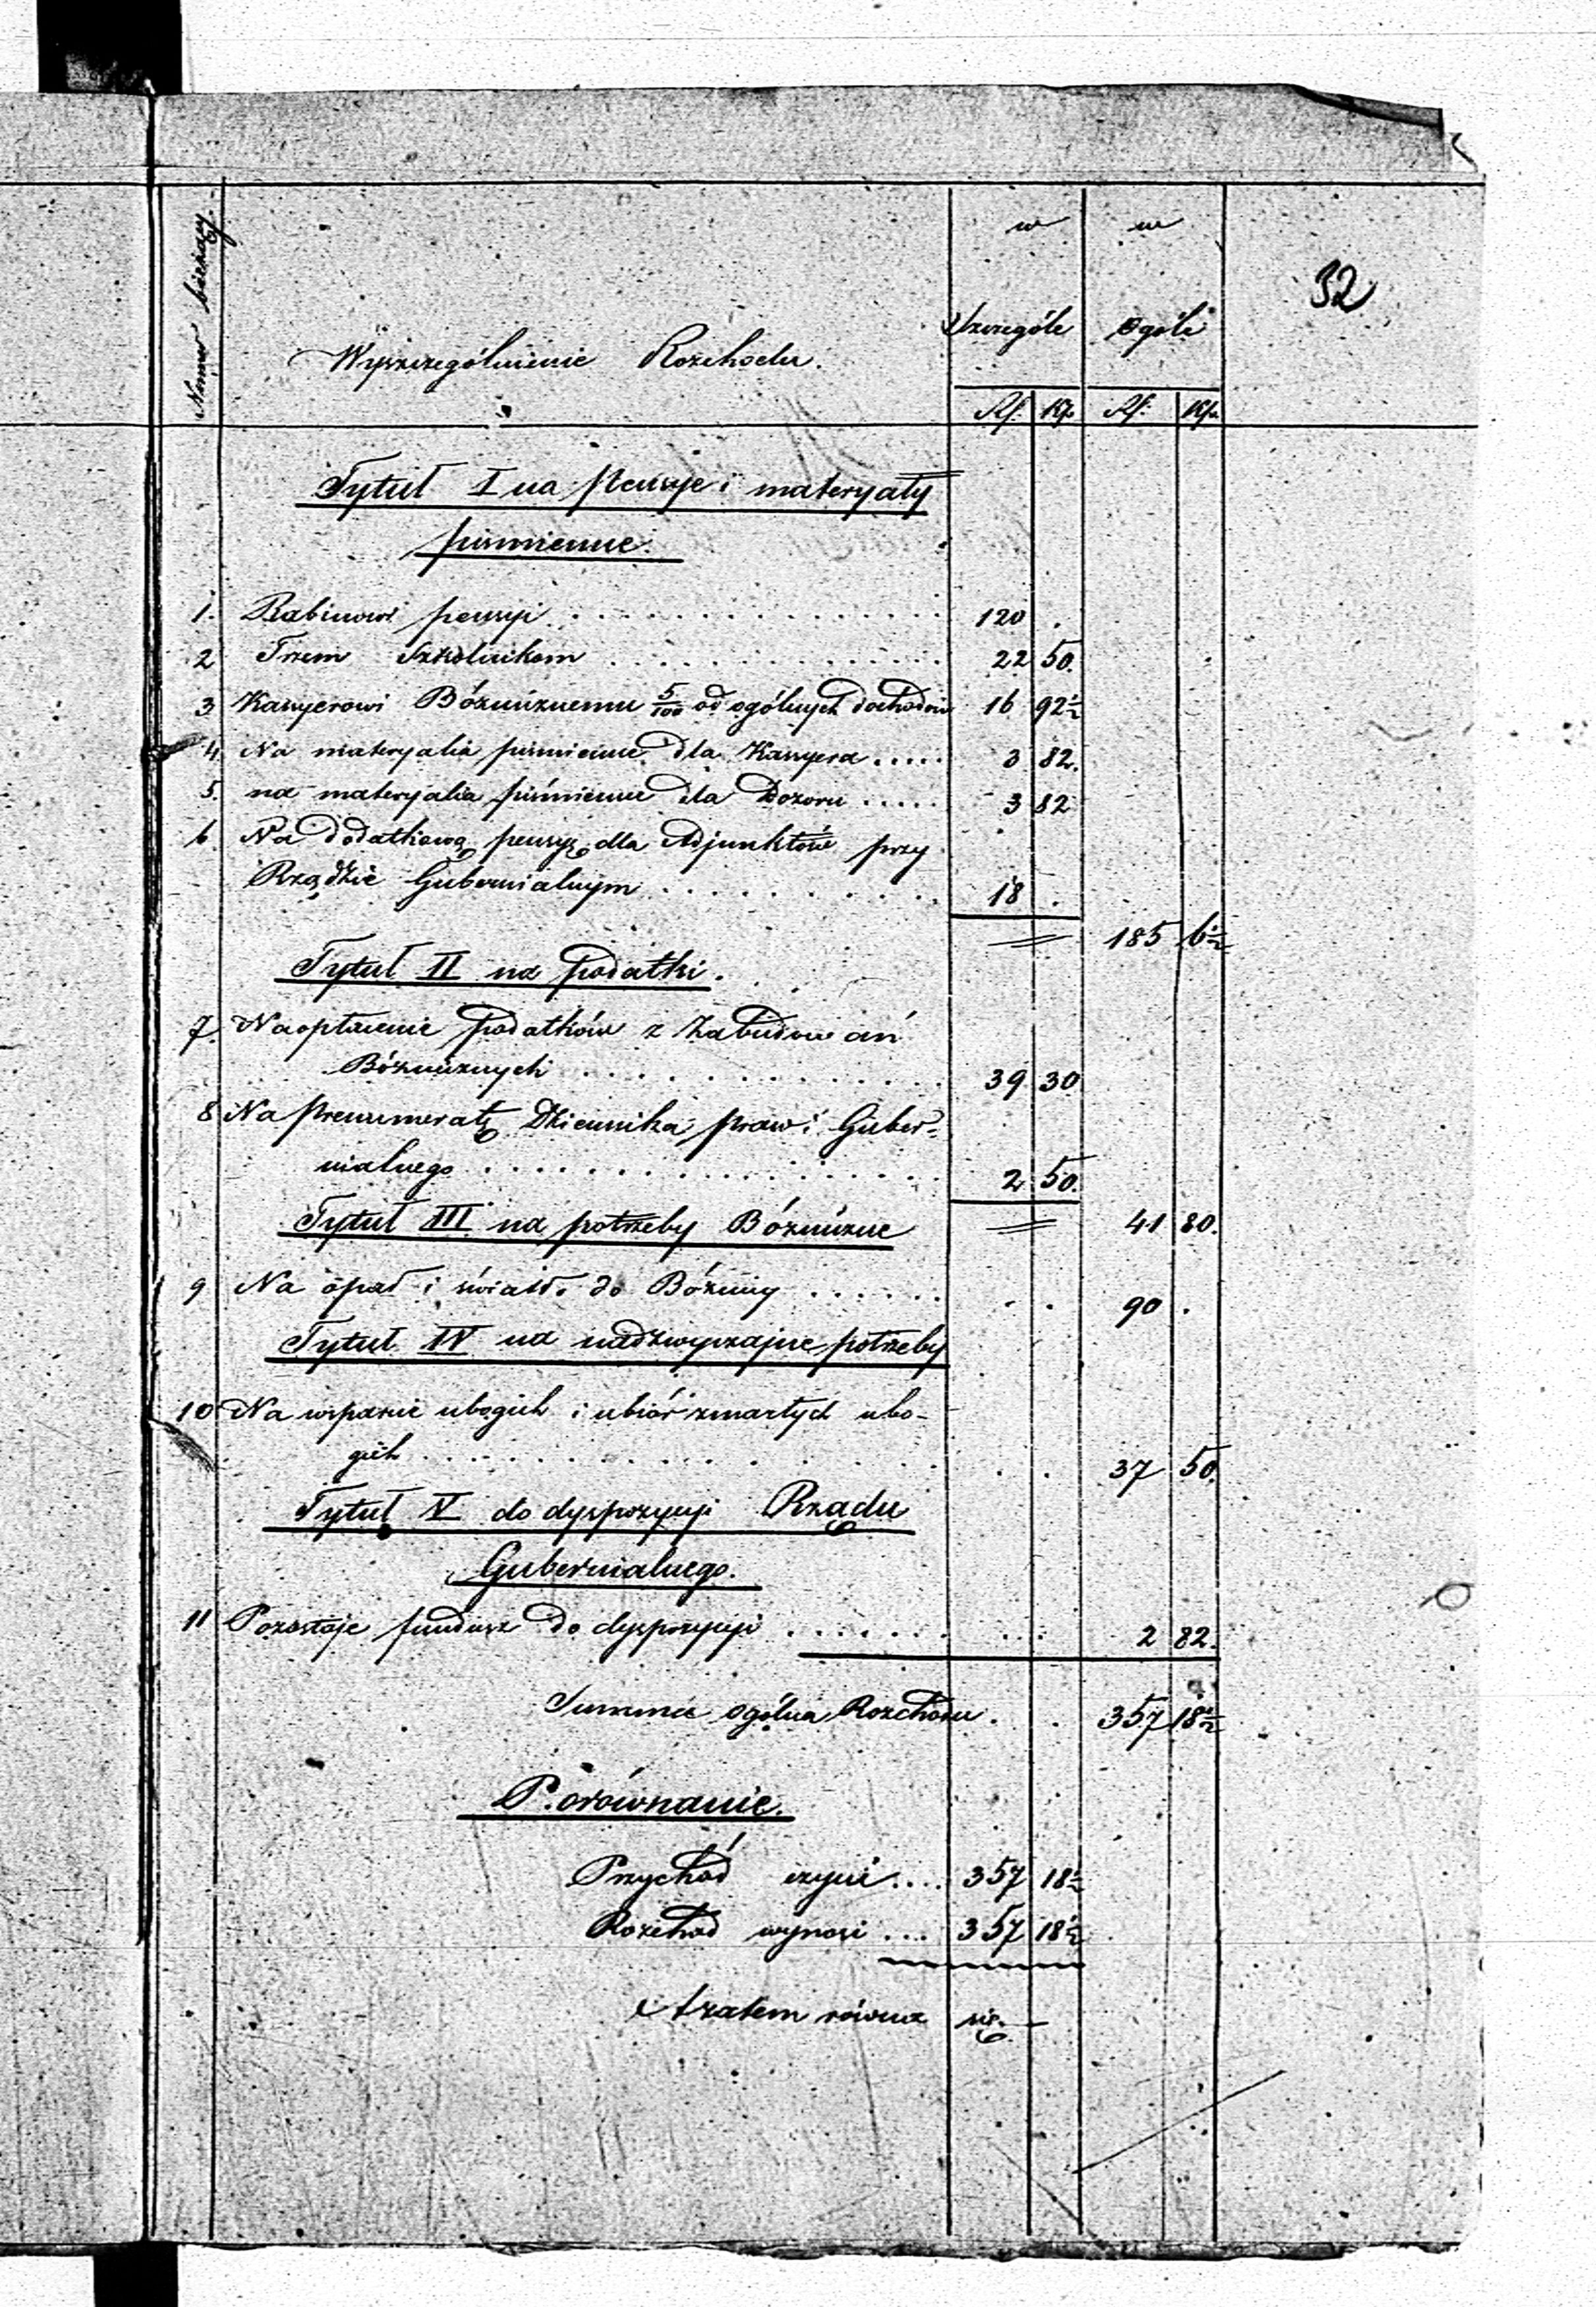 Numer bieżący
Wyszczególnienie Rozchodu.
w Szczególe
w Ogóle
Rs. Kp. Rs. Kp.
32
Tytuł I na pensye i materyały
piśmienne.
1. Rabinowi pensyi . . . 120 .
2 Trzem Szkolnikom . . . 22 50.
3 Kassyerowi Bóżniznemu 5/100 od ogólnych dochodów 16 92½
4. Na materyalia piśmienne dla Kassyera . . . . . 3 82.
5. na materyalia piśmienne dla Dozoru . . . . . 3 82
6. Na dodatkową pensyę dla Adjunktów przy
Rządzie Gubernialnym . . . 18 .
185 6½
Tytuł II na podatki.
7. Na opłacenie podatków z Zabudowań
Bóżniznych . . . 39 30
8 Na prenumeratę Dziennika praw i Guber=
nialnego . . . 2 50.
Tytuł III na potrzeby Bóżnizne 41 80.
9 Na opał i światło do Bóżnicy . . . . . . 90 .
Tytuł IV na nadzwyczajne potrzeby
10 Na wsparcie ubogich i ubiór zmarłych ubo-
gich . . . 37 50.
Tytuł V do dyspozycyi Rządu
Gubernialnego.
11 Pozostaje fundusz do dyspozycyi . . . 2 82.
Summa ogólna Rozchodu . . 357 18½
Porównanie.
Przychód czyni . . . . 357 18½
Rozchód wynosi . . . 357 18½
A zatem równa się.—